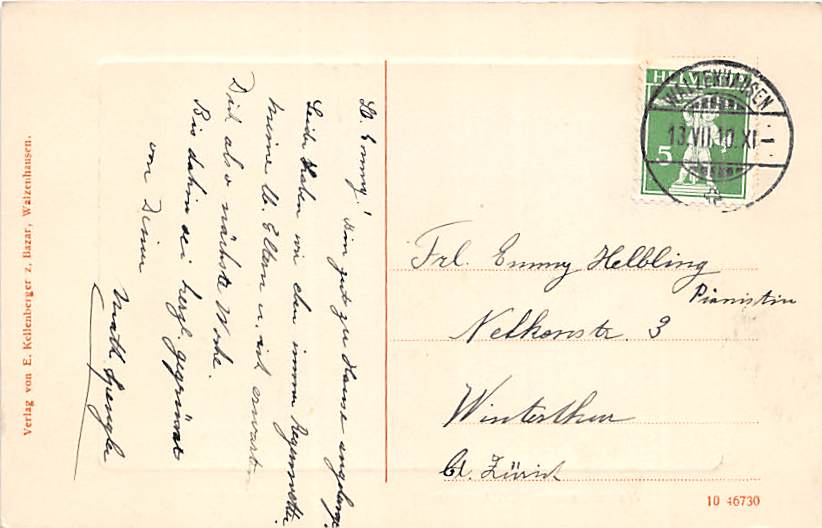 Lb. Emmy! Bin gut zu Hause angelangt.
Leider haben wir ehr immer Regenwetter.
Meine lb. Eltern u. ich erwarten
Dich also nächste Woche.
Bis dahin sei herzl. gegrüsst
von Deiner
HELVETIA
5
WALZENHAUSEN
13.VII.10.XI-
Frl. Emmy Helbling
Pianistin
Nelkenstr. 3
Winterthur
Ct. Zürich
Verlag von E. Kellenberger z. Bazar, Walzenhausen.
10 46730